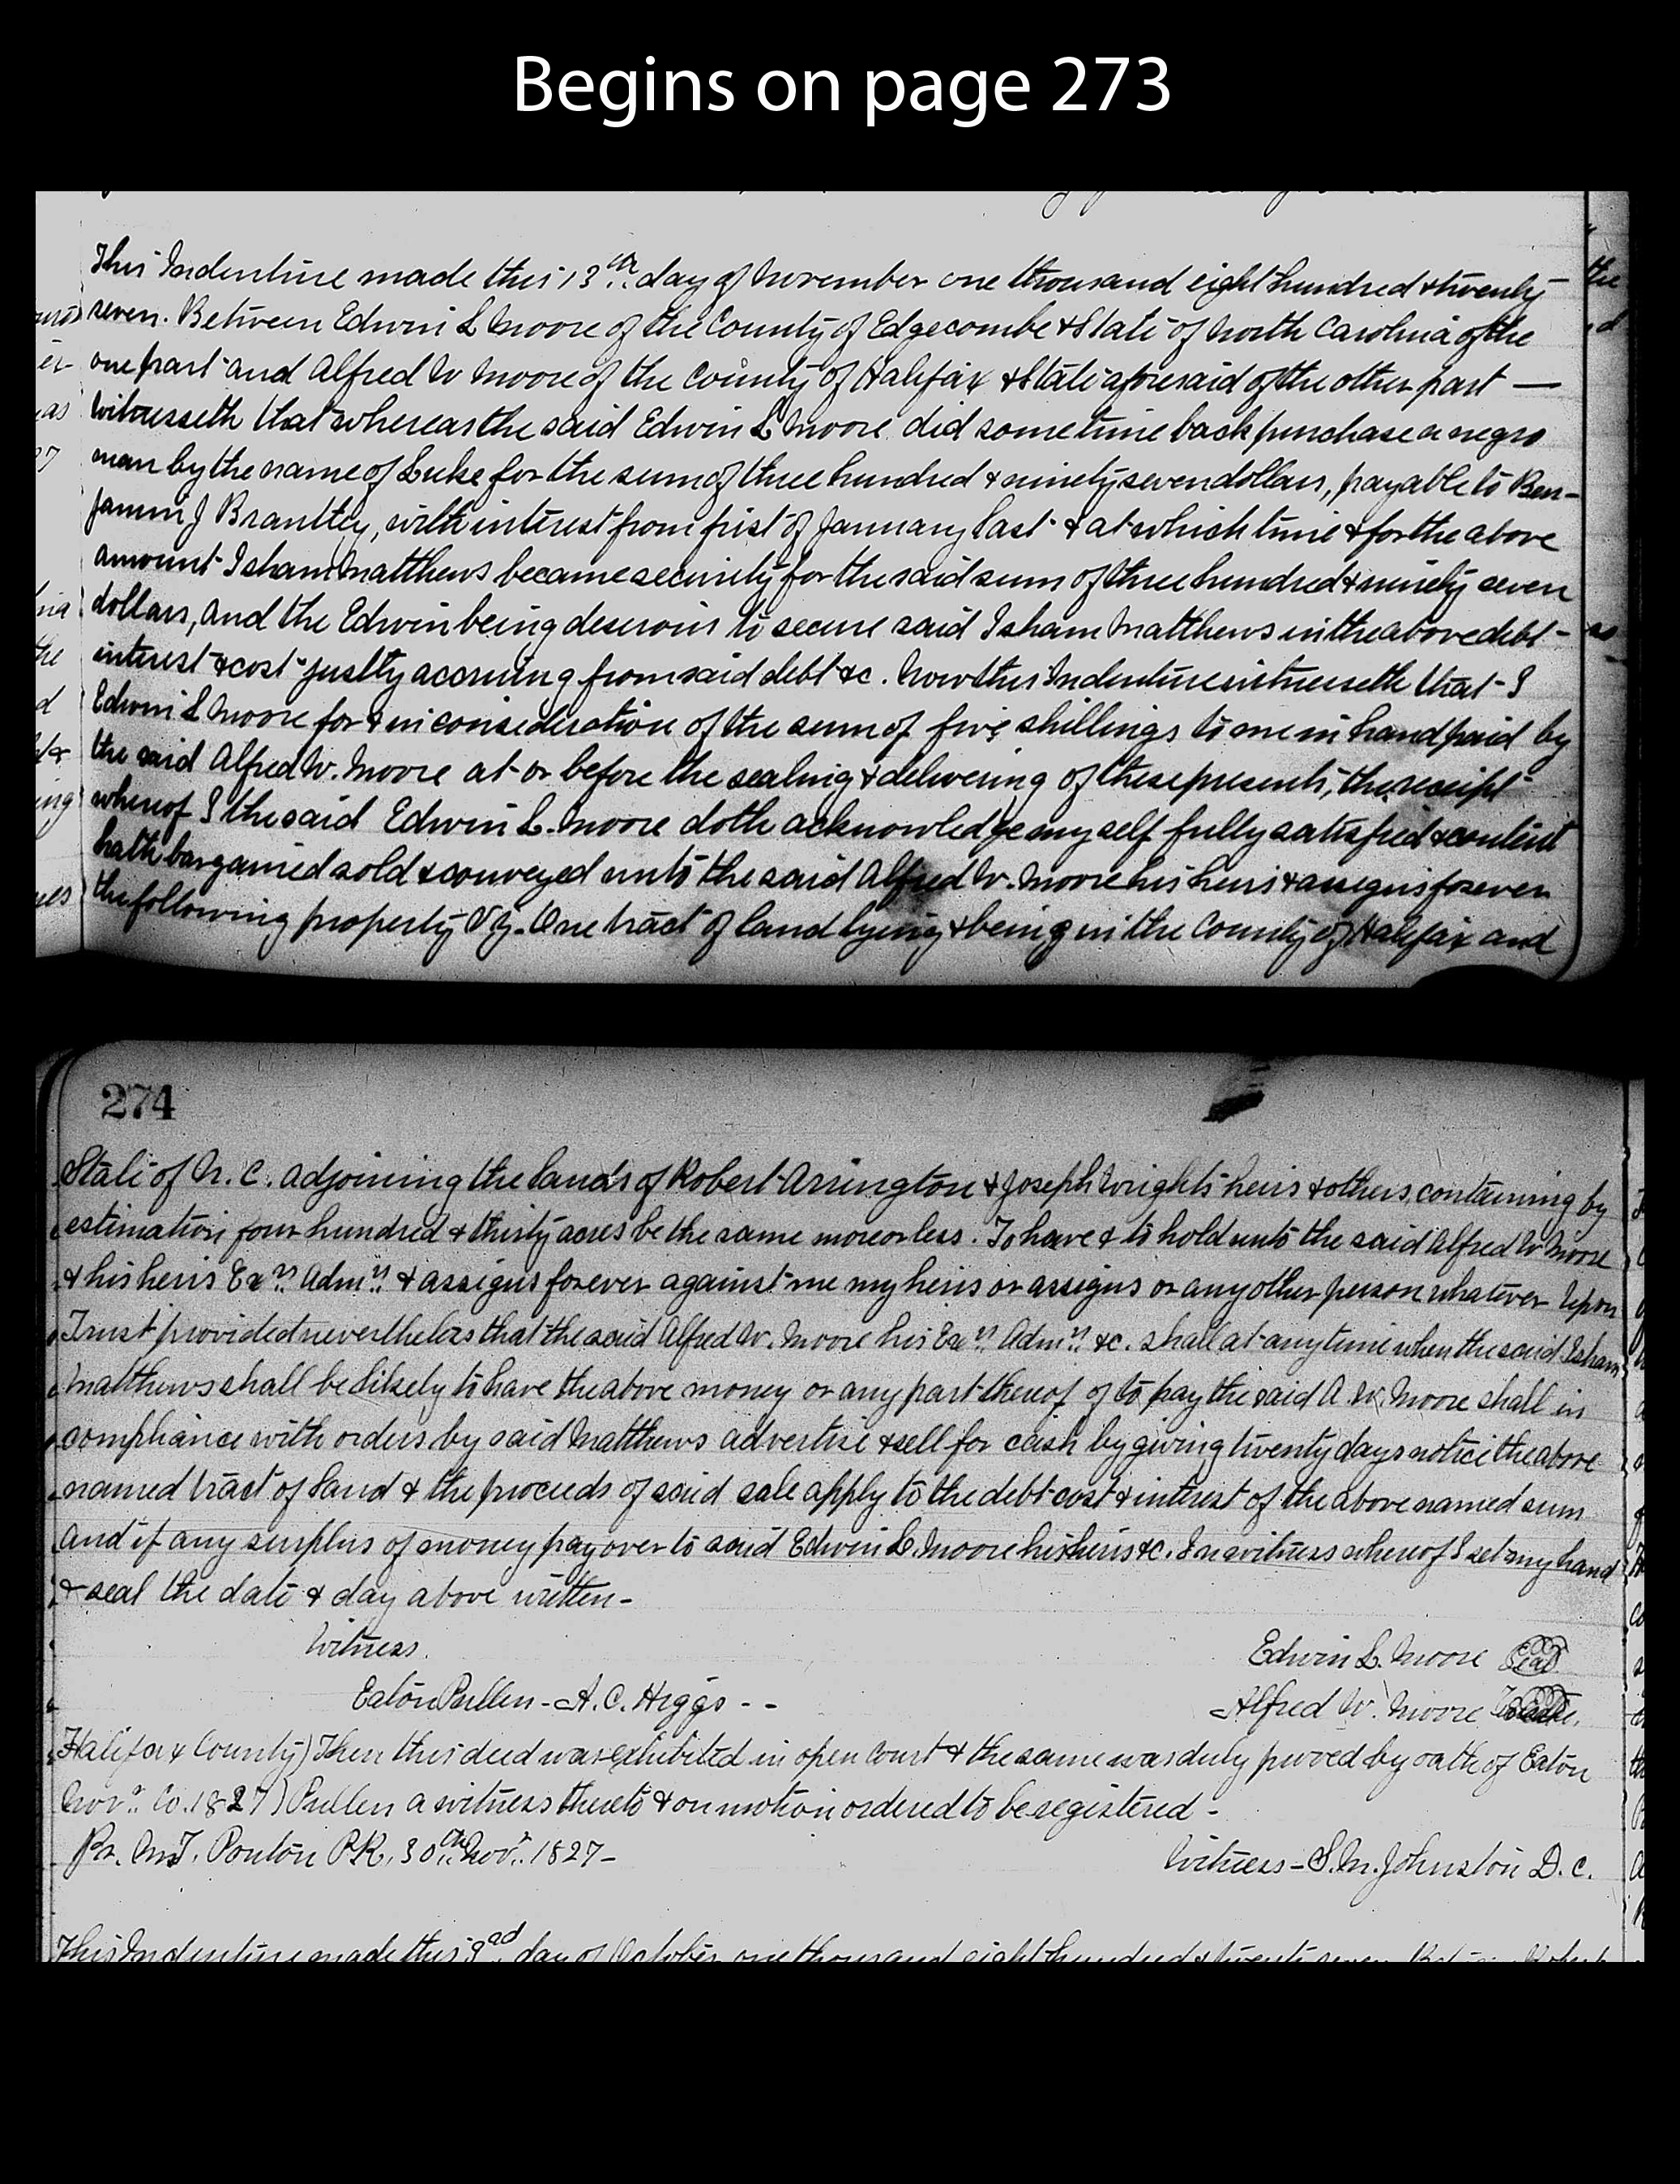 Begins on page 273
This Indenture made this 13th. day of November one thousand eight hundred & twenty
seven. Between Edwin L Moore of the County of Edgecombe & State of North Carolina of the
one part and Alfred W Moore of the County of Halifax & State aforesaid of the other part —
Witnesseth that whereas the said Edwin L Moore did sometime back purchase a negro
man by the name of Luke for the sum of three hundred & ninety seven dollars, payable to Ben-
jamin J Brantley, with interest from first of January last & at which time & for the above
amount Isham Matthews became security for the said sum of three hundred & ninety seven
dollars, and the Edwin being desirous to secure said Isham Matthews in the above debt -
interest & cost justly accruing from said debt &c. Now this Indenture witnesseth that I
Edwin L Moore for & in consideration of the sum of five shillings to me in hand paid by
the said Alfred W. Moore at or before the sealing & delivering of these presents, the receipt
whereof I the said Edwin L. Moore doth acknowledge myself fully satisfied & content
hath bargained sold & conveyed unto the said Alfred W. Moore his heirs & assigns forever
the following property Viz. One tract of land lying & being in the County of Halifax and
274
State of N. C. adjoining the lands of Robert Arrington & Joseph Wrights heirs & others, containing by
estimation four hundred & thirty acres be the same more or less. To have & to hold unto the said Alfred W Moore
& his heirs Exrs. Admrs. & assigns forever against me my heirs or assigns or any other person whatever Upon
Trust provided nevertheless that the said Alfred W. Moore his Exrs. Admrs. &c. shall at any time when the said Isham
Matthews shall be likely to have the above money or any part thereof of to pay the said A. W. Moore shall in
compliance with orders by said Matthews advertise & sell for cash by giving twenty days notice the above
named tract of Land & the proceeds of said sale apply to the debt cost & interest of the above named sum
and if any surplus of money pay over to said Edwin L. Moore his heirs &c. In witness whereof I set my hand
& seal the date & day above written -
Witness. Edwin L. Moore Seal
Eaton Pullen - A. C. Higgs - - Alfred W. Moore
Halifax County) Then this deed was exhibited in open Court & the same was duly proved by oath of Eaton
Novr. Co. 1827) Pullen a witness thereto & on motion ordered to be registered -
Pr. M. T. Ponton P.R. 30th. Novr. 1827 - Witness - S. M. Johnston D. C.
This Indenture made this day of October one thousand eight hundred & twenty seven